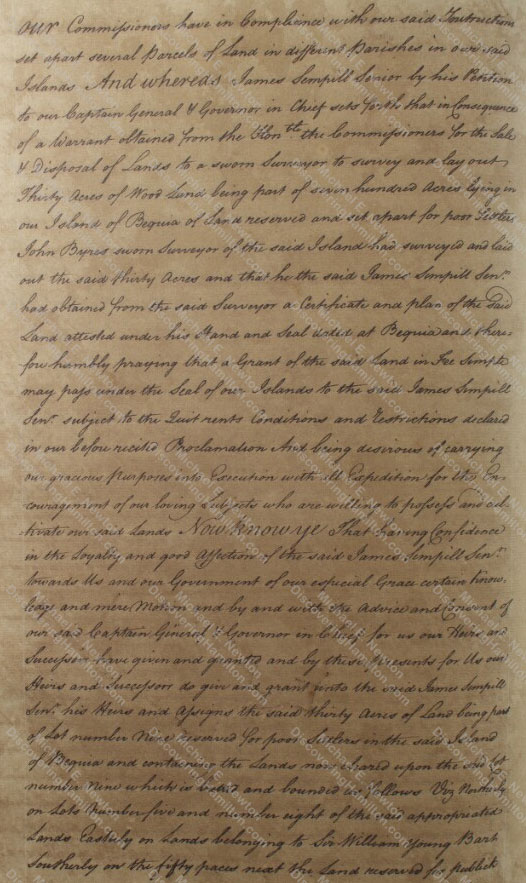 our Commissioners have in Compliance with our said Instructions
set apart several Parcels of Land in different Parishes in our said
Islands And whereas James Sempill Senior by his Petition
to our Captain General & Governor in Chief sets forth that in Consequence
of a Warrant obtained from the Honble the Commissioners for the Sale
& Disposal of Lands to a sworn Surveyor to survey and lay out
Thirty Acres of Wood Land being part of seven hundred Acres lying in
our Island of Bequia of Land reserved and set apart for poor Settlers
John Byres sworn Surveyor of the said Island had surveyed and laid
out the said thirty Acres and that he the said James Sempill Senr
had obtained from the said Surveyor a Certificate and plan of the said
Land attested under his Hand and Seal dated at Bequia and there-
fore humbly praying that a Grant of the said Land in Fee Simple
may pass under the Seal of our Islands to the said James Sempill
Senr subject to the Quit rents Conditions and Restrictions declared
in our before recited Proclamation And being desirous of carrying
our gracious Purposes into Execution with all Expedition for the En-
couragement of our loving Subjects who are willing to possess and cul-
tivate our said Lands Now know ye That having Confidence
in the Loyalty and good Affection of the said James Sempill Senr
towards Us and our Government of our especial Grace certain Know-
ledge and mere Motion and by and with the Advice and Consent of
our said Captain General & Governor in Chief for us our Heirs and
Successors have given and granted and by these presents for Us our
Heirs and Successors do give and grant unto the said James Sempill
Senr his Heirs and Assigns the said thirty Acres of Land being part
of Lot number Nine reserved for poor Settlers in the said Island
of Bequia and containing the Lands now cleared upon the said Lot
number Nine which is butted and bounded as follows Viz Northerly
on Lots number five and number eight of the said appropriated
Lands Easterly on Lands belonging to Sir William Young Bart
Southerly on the fifty paces next the Land reserved for publick